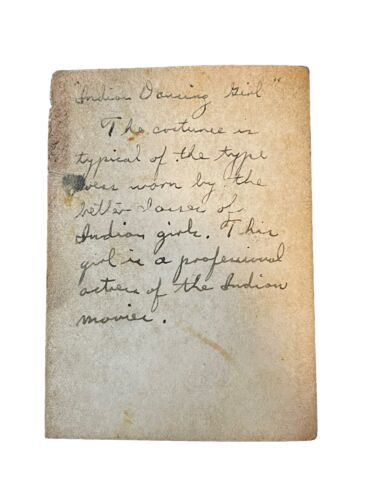 "Indian Dancing Girl"
The costume is
typical of the type
worn by the
better classes of
Indian girls. This
girl is a professional
actress of the Indian
movies.